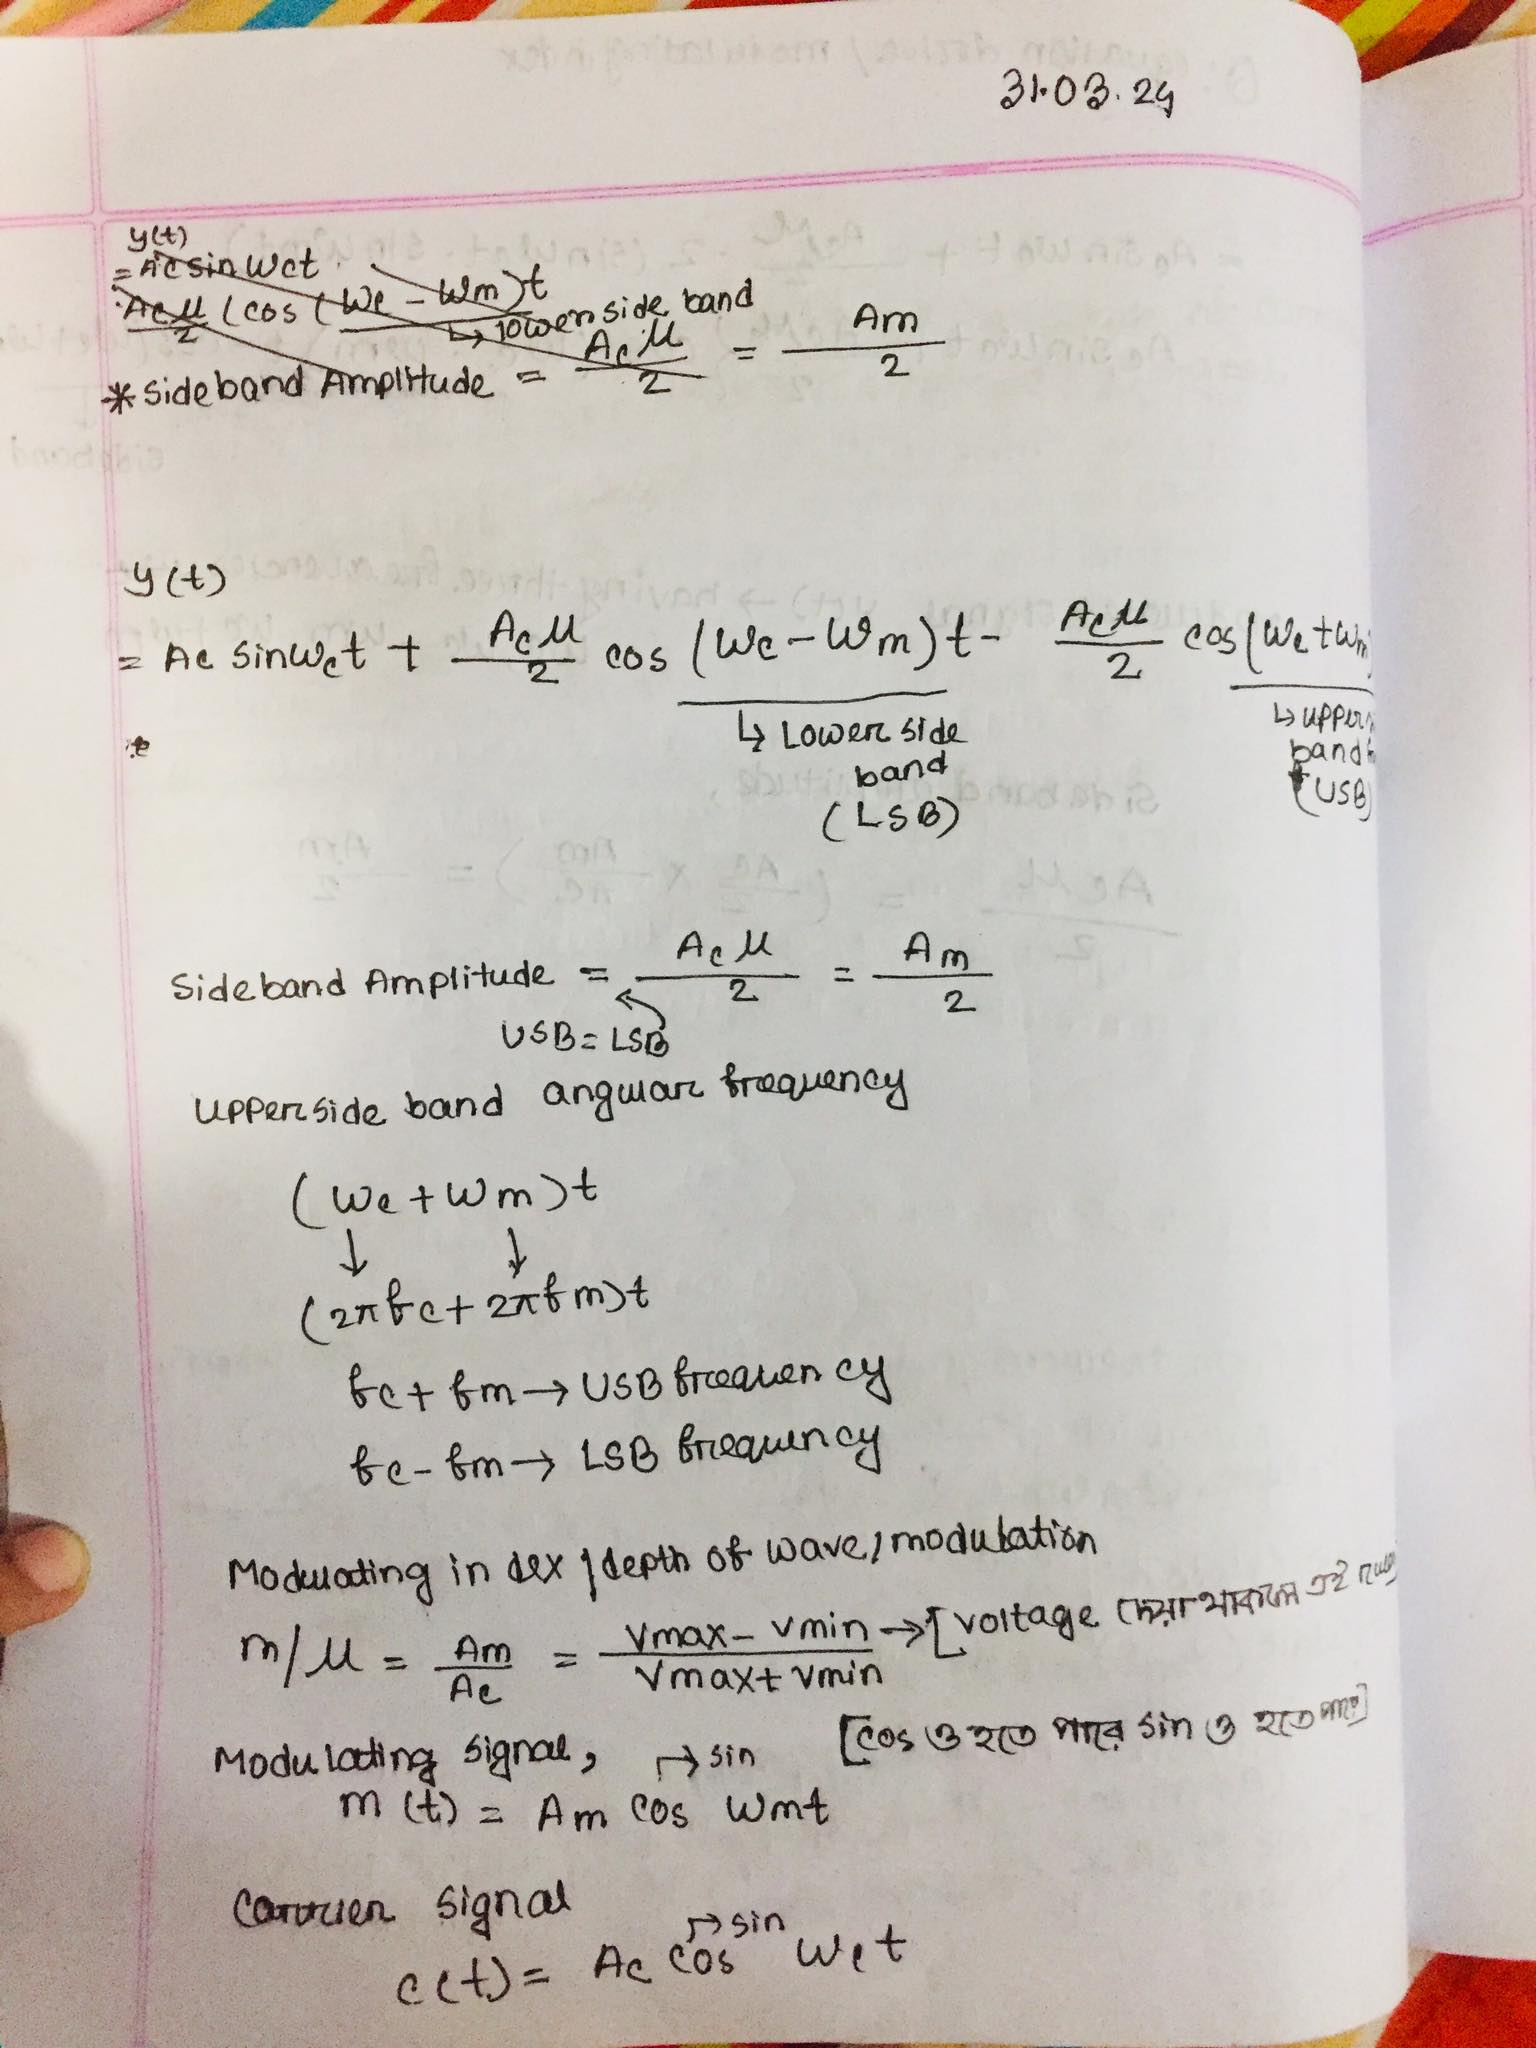 31.03.24
y(t)
= Ac sinwct
Acμ/2 (cos (wc - wm)t
↳ lower side band
* Sideband Amplitude = Acμ/2 = Am/2
y(t)
= Ac sinwct + Acμ/2 cos (wc - wm)t - Acμ/2 cos (wc + wm
↳ Lower side
band
(LSB)
↳ upper
band
(USB)
Sideband Amplitude = Acμ/2 = Am/2
USB = LSB
upper side band angular frequency
(wc + wm)t
↓ ↓
(2πfc + 2πfm)t
fc + fm → USB frequency
fc - fm → LSB frequency
Modulating index / depth of wave / modulation
m/μ = Am/Ac = Vmax - Vmin/Vmax + Vmin → [voltage দেয়া থাকলে এই
Modulating signal, → sin [cos ও হতে পারে sin ও হতে পারে]
m(t) = Am cos wmt
carrier signal
→ sin
c(t) = Ac cos wct